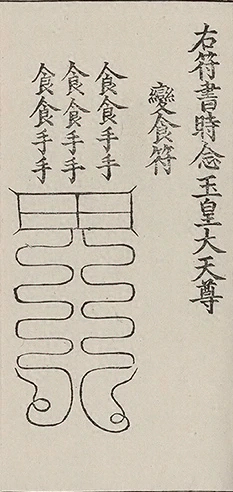 右符書時念玉皇大天尊
變食符
食食手手
食食手手
食食手手